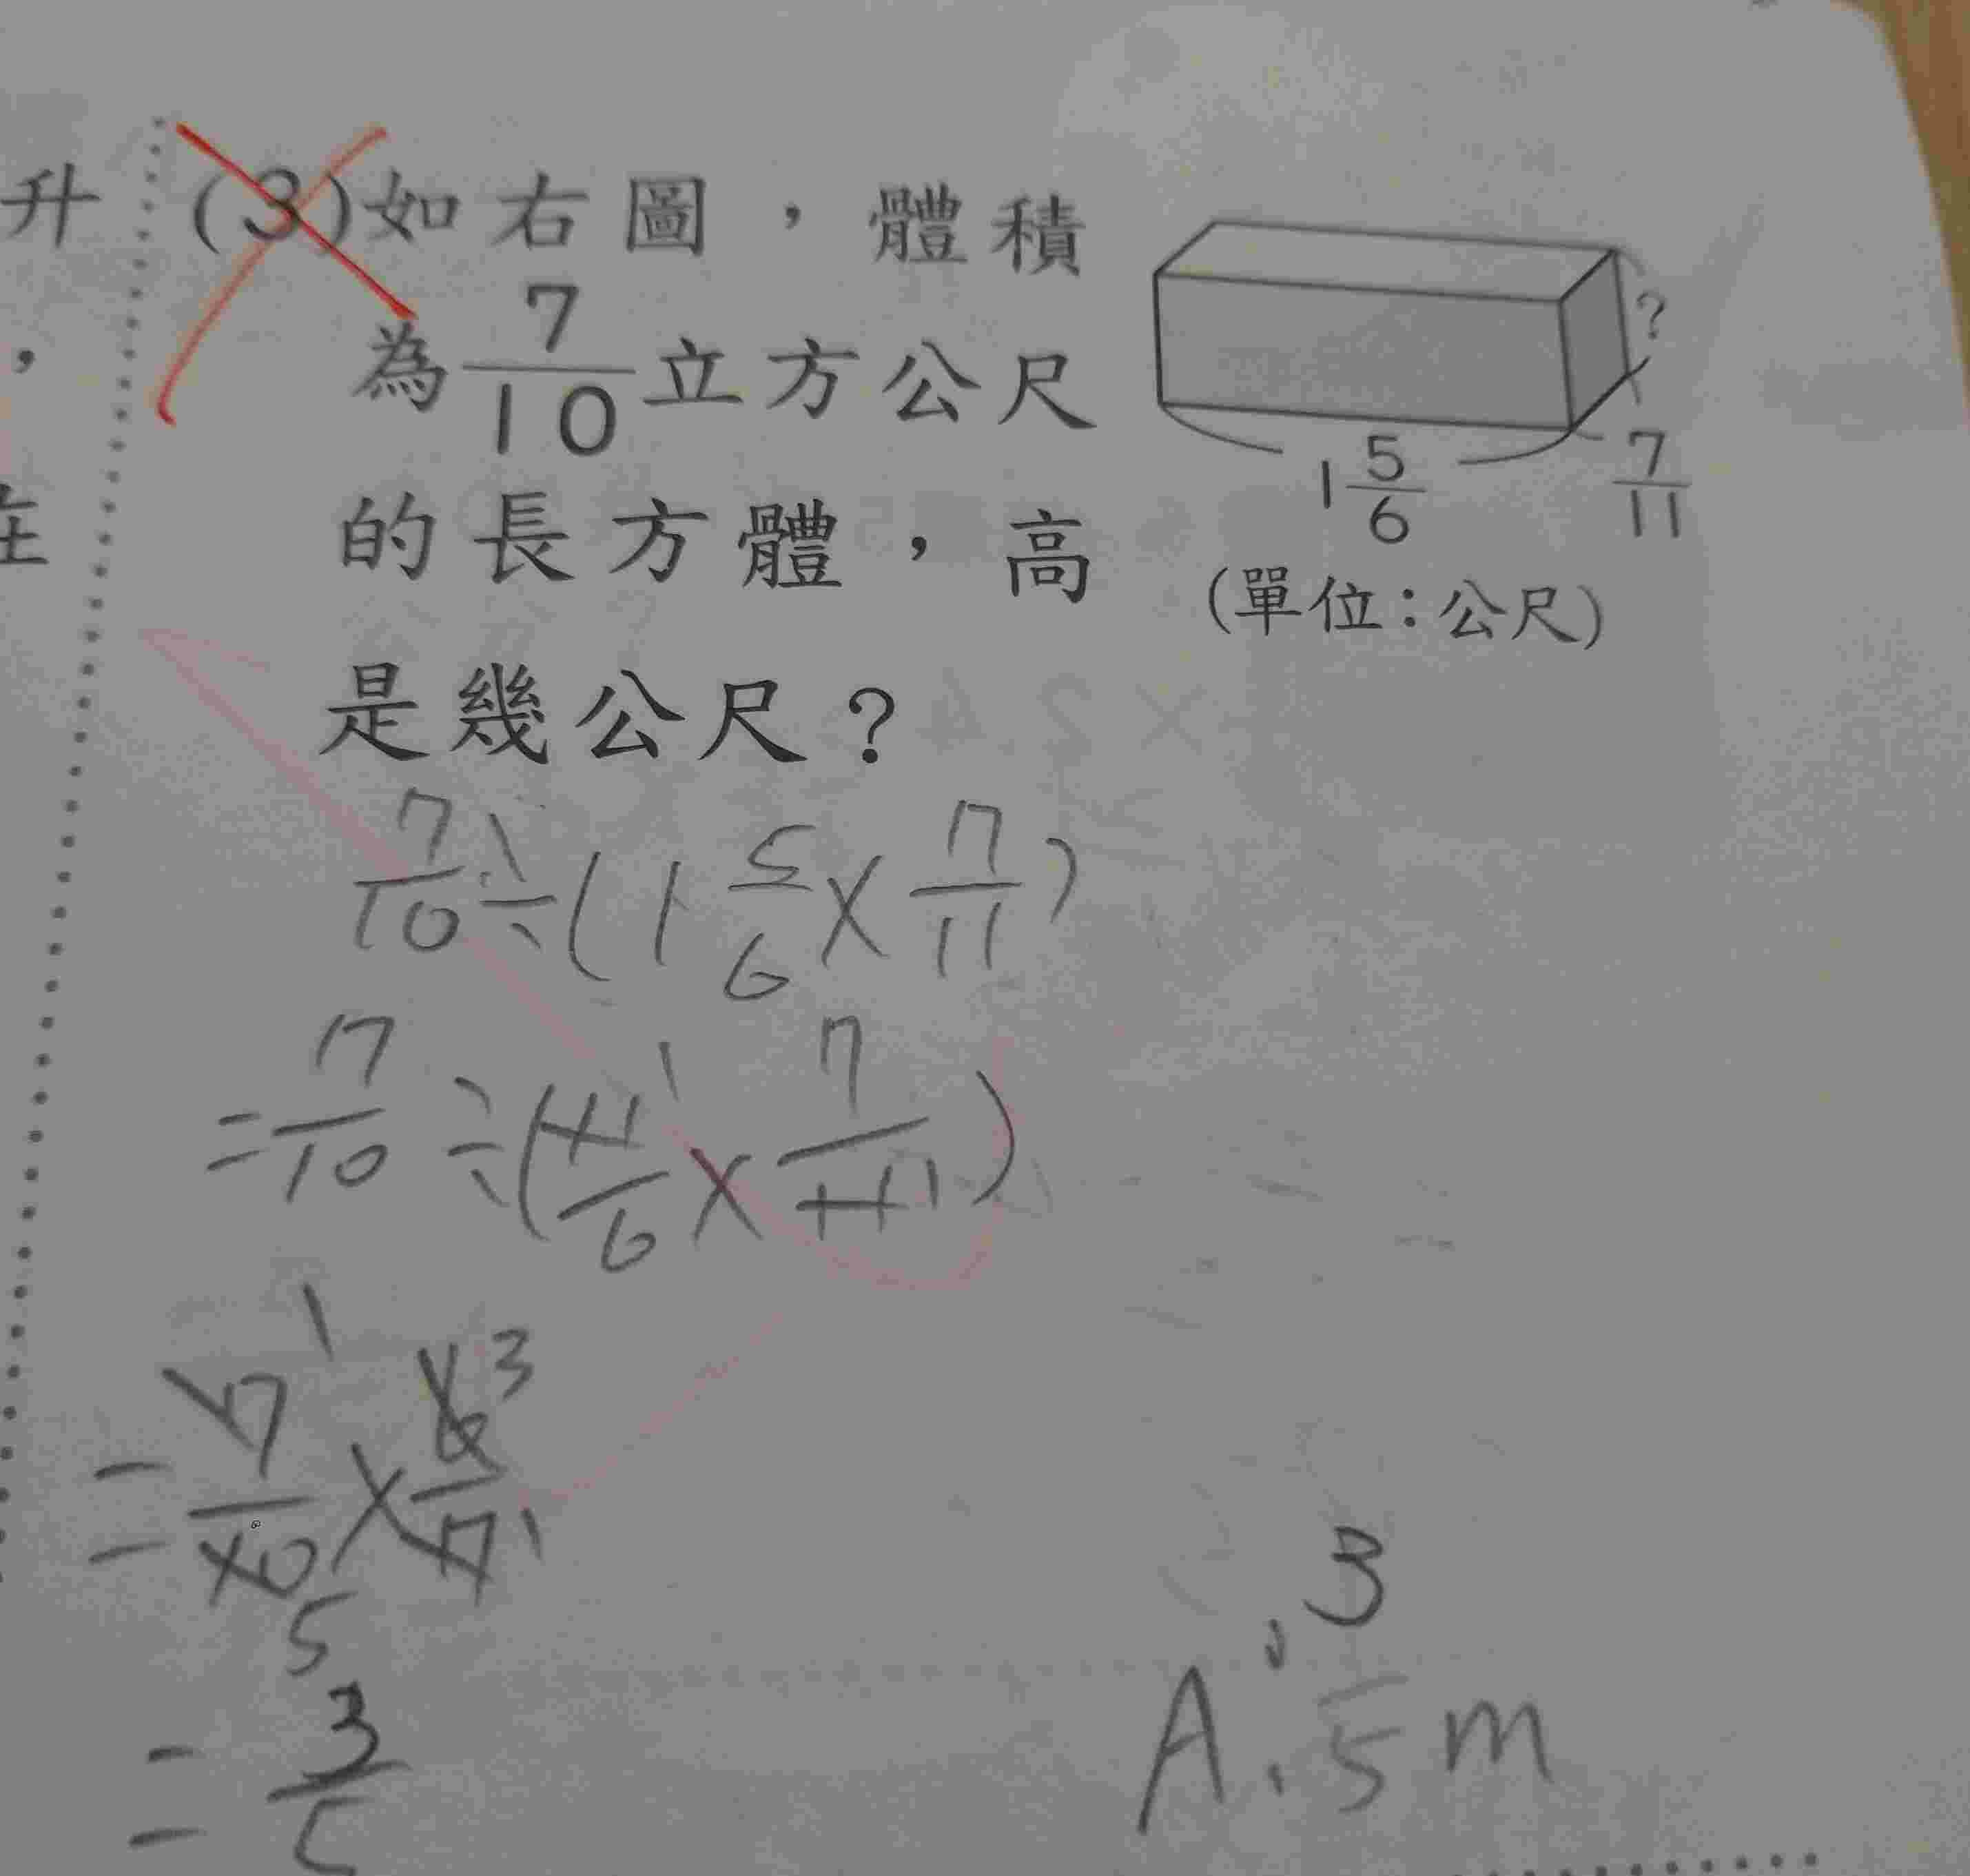 升
(3)如右圖，體積
，
為 7/10 立方公尺
在
的長方體，高
是幾公尺？
?
1 5/6
7/11
(單位：公尺)
7/10 ÷ (1 5/6 × 7/11)
= 7/10 ÷ (11/6 × 7/11)
1
= 7/10 × 6/7
1 3
5 1
= 3/5
A: 3/5 m